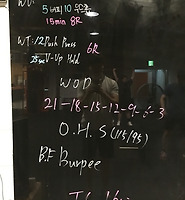 WU:
15min 8R
WT: 12 Push Press
V-Up Hold 6R
WOD
21-18-15-12-9-6-3
O.H.S (115/95)
B.F Burpee